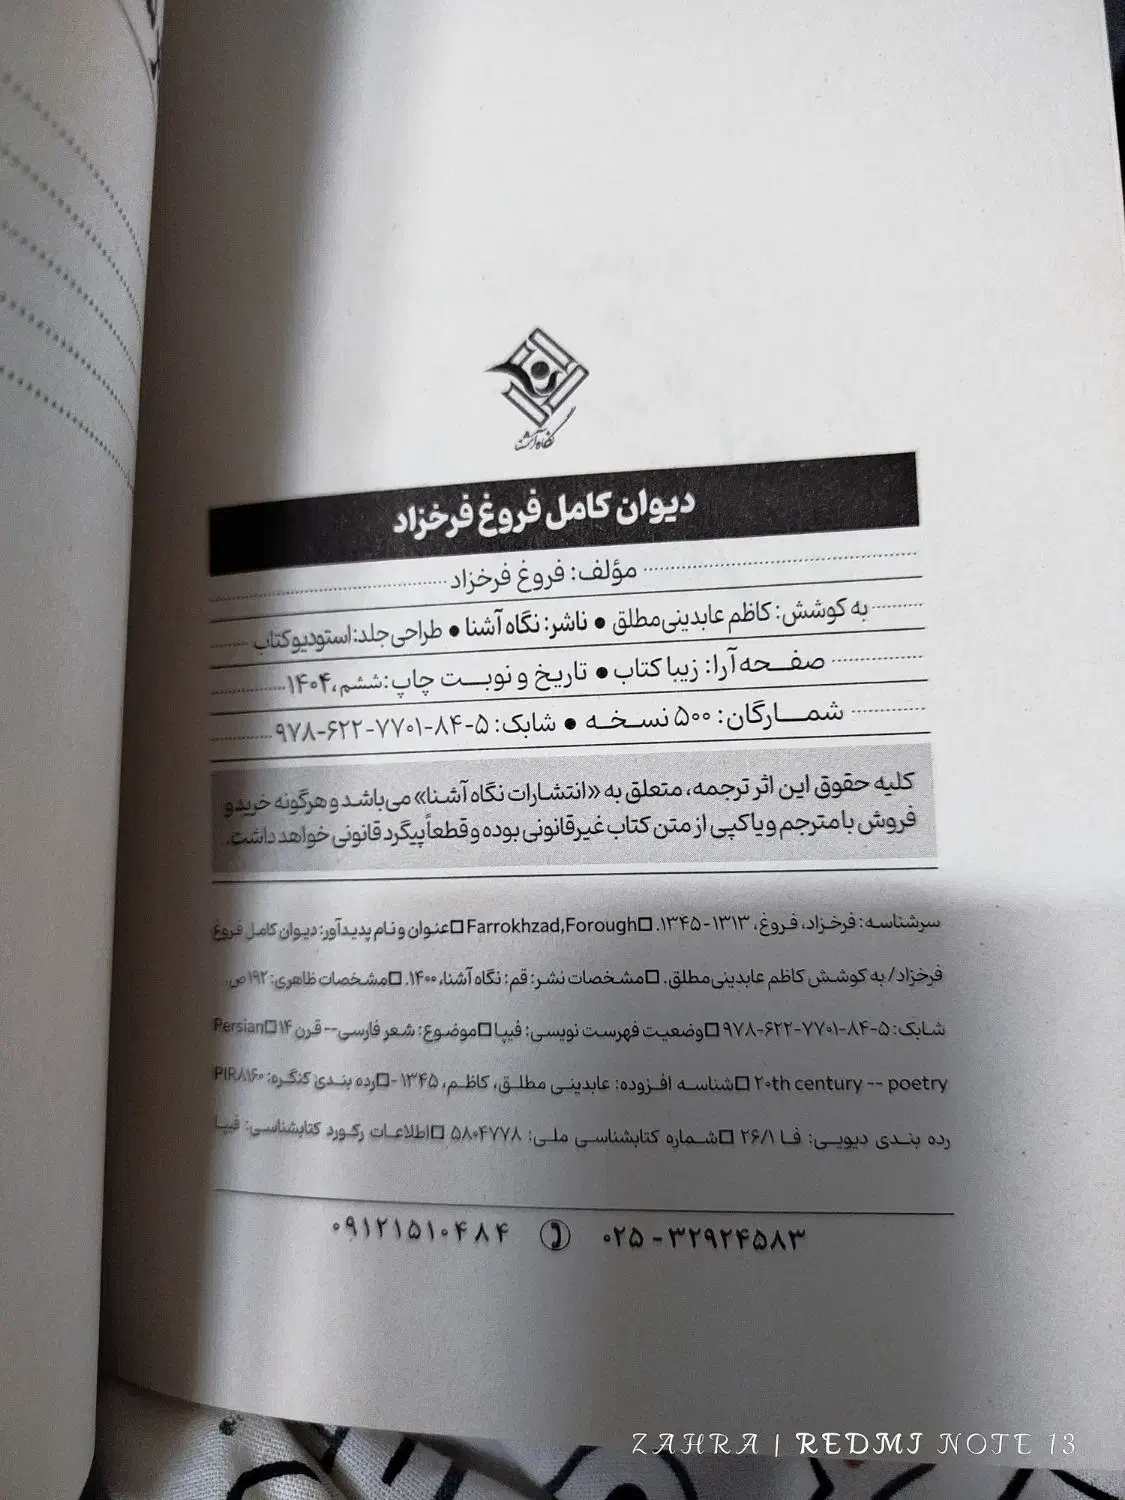 نگاه آشنا
دیوان کامل فروغ فرخزاد
مؤلف: فروغ فرخزاد
به کوشش: کاظم عابدینی‌مطلق ● ناشر: نگاه آشنا ● طراحی جلد: استودیو کتاب
صفحه‌آرا: زیبا کتاب ● تاریخ و نوبت چاپ: ششم، ۱۴۰۴
شمارگان: ۵۰۰ نسخه ● شابک: ۵-۸۴-۷۷۰۱-۶۲۲-۹۷۸
کلیه حقوق این اثر ترجمه، متعلق به «انتشارات نگاه آشنا» می‌باشد و هرگونه خرید و
فروش با مترجم و یا کپی از متن کتاب غیرقانونی بوده و قطعاً پیگرد قانونی خواهد داشت.
سرشناسه: فرخزاد، فروغ، ۱۳۱۳-۱۳۴۵. □Farrokhzad,Forough□عنوان و نام پدیدآور: دیوان کامل فروغ
فرخزاد/ به کوشش کاظم عابدینی‌مطلق. □مشخصات نشر: قم: نگاه آشنا، ۱۴۰۰. □مشخصات ظاهری: ۱۹۲ص.
شابک: ۵-۸۴-۷۷۰۱-۶۲۲-۹۷۸□وضعیت فهرست نویسی: فیپا□موضوع: شعر فارسی-- قرن ۱۴□Persian
poetry -- ۲۰th century □شناسه افزوده: عابدینی مطلق، کاظم، ۱۳۴۵ -□رده بندی کنگره: PIR۸۱۶۰
رده بندی دیویی: فا ۲۶/۱ □شماره کتابشناسی ملی: ۵۸۰۴۷۷۸ □اطلاعات رکورد کتابشناسی: فیپا
۰۲۵-۳۲۹۲۴۵۸۳ ۰۹۱۲۱۵۱۰۴۸۴
ZAHRA | REDMI NOTE 13